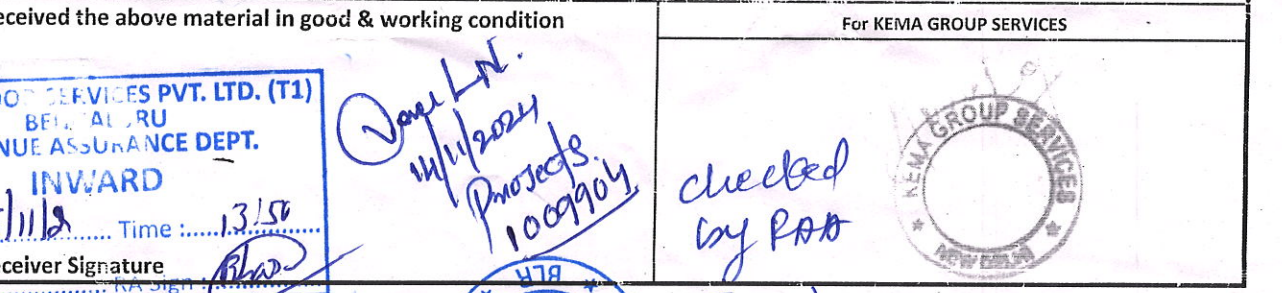 eceived the above material in good & working condition
For KEMA GROUP SERVICES
SERVICES PVT. LTD. (T1)
NUE ASSURANCE DEPT.
INWARD
Time :
13:50
eceiver Signature
RA Sign :
14/11/2024
Projects.
1009904
checked
by
KEMA GROUP SERVICES
NEW DELHI
BLR